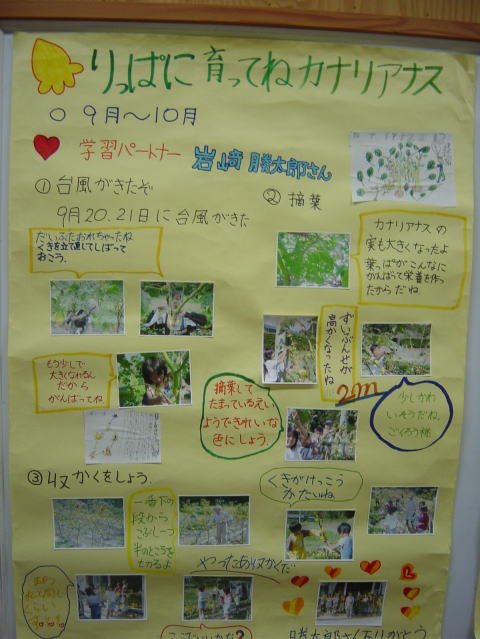 りっぱに育ってねカナリアナス
○ 9月〜10月
学習パートナー 岩﨑勝太郎さん
①台風がきたぞ
9月20.21日に台風がきた
だいぶたおれちゃったね
くきを立て直してしばって
おこう。
もう少しで
大きくなれるん
だから
がんばってね
②摘葉
カナリアナスの
実も大きくなったよ
葉っぱがこんなに
がんばって栄養を作っ
たからだね。
ずいぶんせが
高かくなったね
2m
摘葉して
たまっているえい
ようできれいな
色にしよう。
少しかわ
いそうだね。
ごくろう様
③収かくをしよう。
一番下の
段から
こぶし一つ
半のところを
切るよ
くきがけっこう
かたいね
やったあ収かくだ
勝太郎さんありがとう